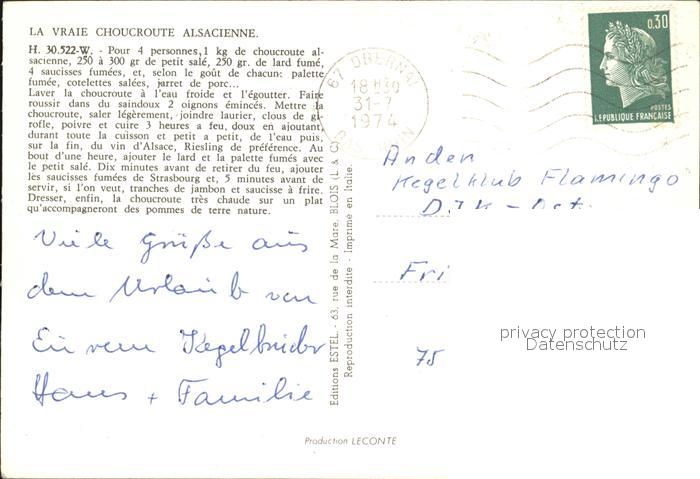 LA VRAIE CHOUCROUTE ALSACIENNE.
H. 30.522-W. - Pour 4 personnes, 1 kg de choucroute al-
sacienne, 250 à 300 gr de petit salé, 250 gr. de lard fumé,
4 saucisses fumées, et, selon le goût de chacun: palette
fumée, cotelettes salées, jarret de porc...
Laver la choucroute à l'eau froide et l'égoutter. Faire
roussir dans du saindoux 2 oignons émincés. Mettre la
choucroute, saler légèrement, joindre laurier, clous de gi-
rofle, poivre et cuire 3 heures a feu, doux en ajoutant,
durant toute la cuisson et petit a petit, de l'eau puis,
sur la fin, du vin d'Alsace, Riesling de préférence. Au
bout d'une heure, ajouter le lard et la palette fumés avec
le petit salé. Dix minutes avant de retirer du feu, ajouter
les saucisses fumées de Strasbourg et, 5 minutes avant de
servir, si l'on veut, tranches de jambon et saucisse à frire.
Dresser, enfin, la choucroute très chaude sur un plat
qu'accompagneront des pommes de terre nature.
Viele Grüße aus
dem Urlaub von
Eurem Kegelbruder
Hans + Familie
Editions ESTEL - 63, rue de la Mare, BLOIS (L & C)
Reproduction interdite - Imprimé en Italie.
67 OBERNAI
18H30
31-7
1974
BAS RHIN
0,30
POSTES
REPUBLIQUE FRANÇAISE
An den
Kegelklub Flamingo
Fri
75
privacy protection
Datenschutz
Production LECONTE